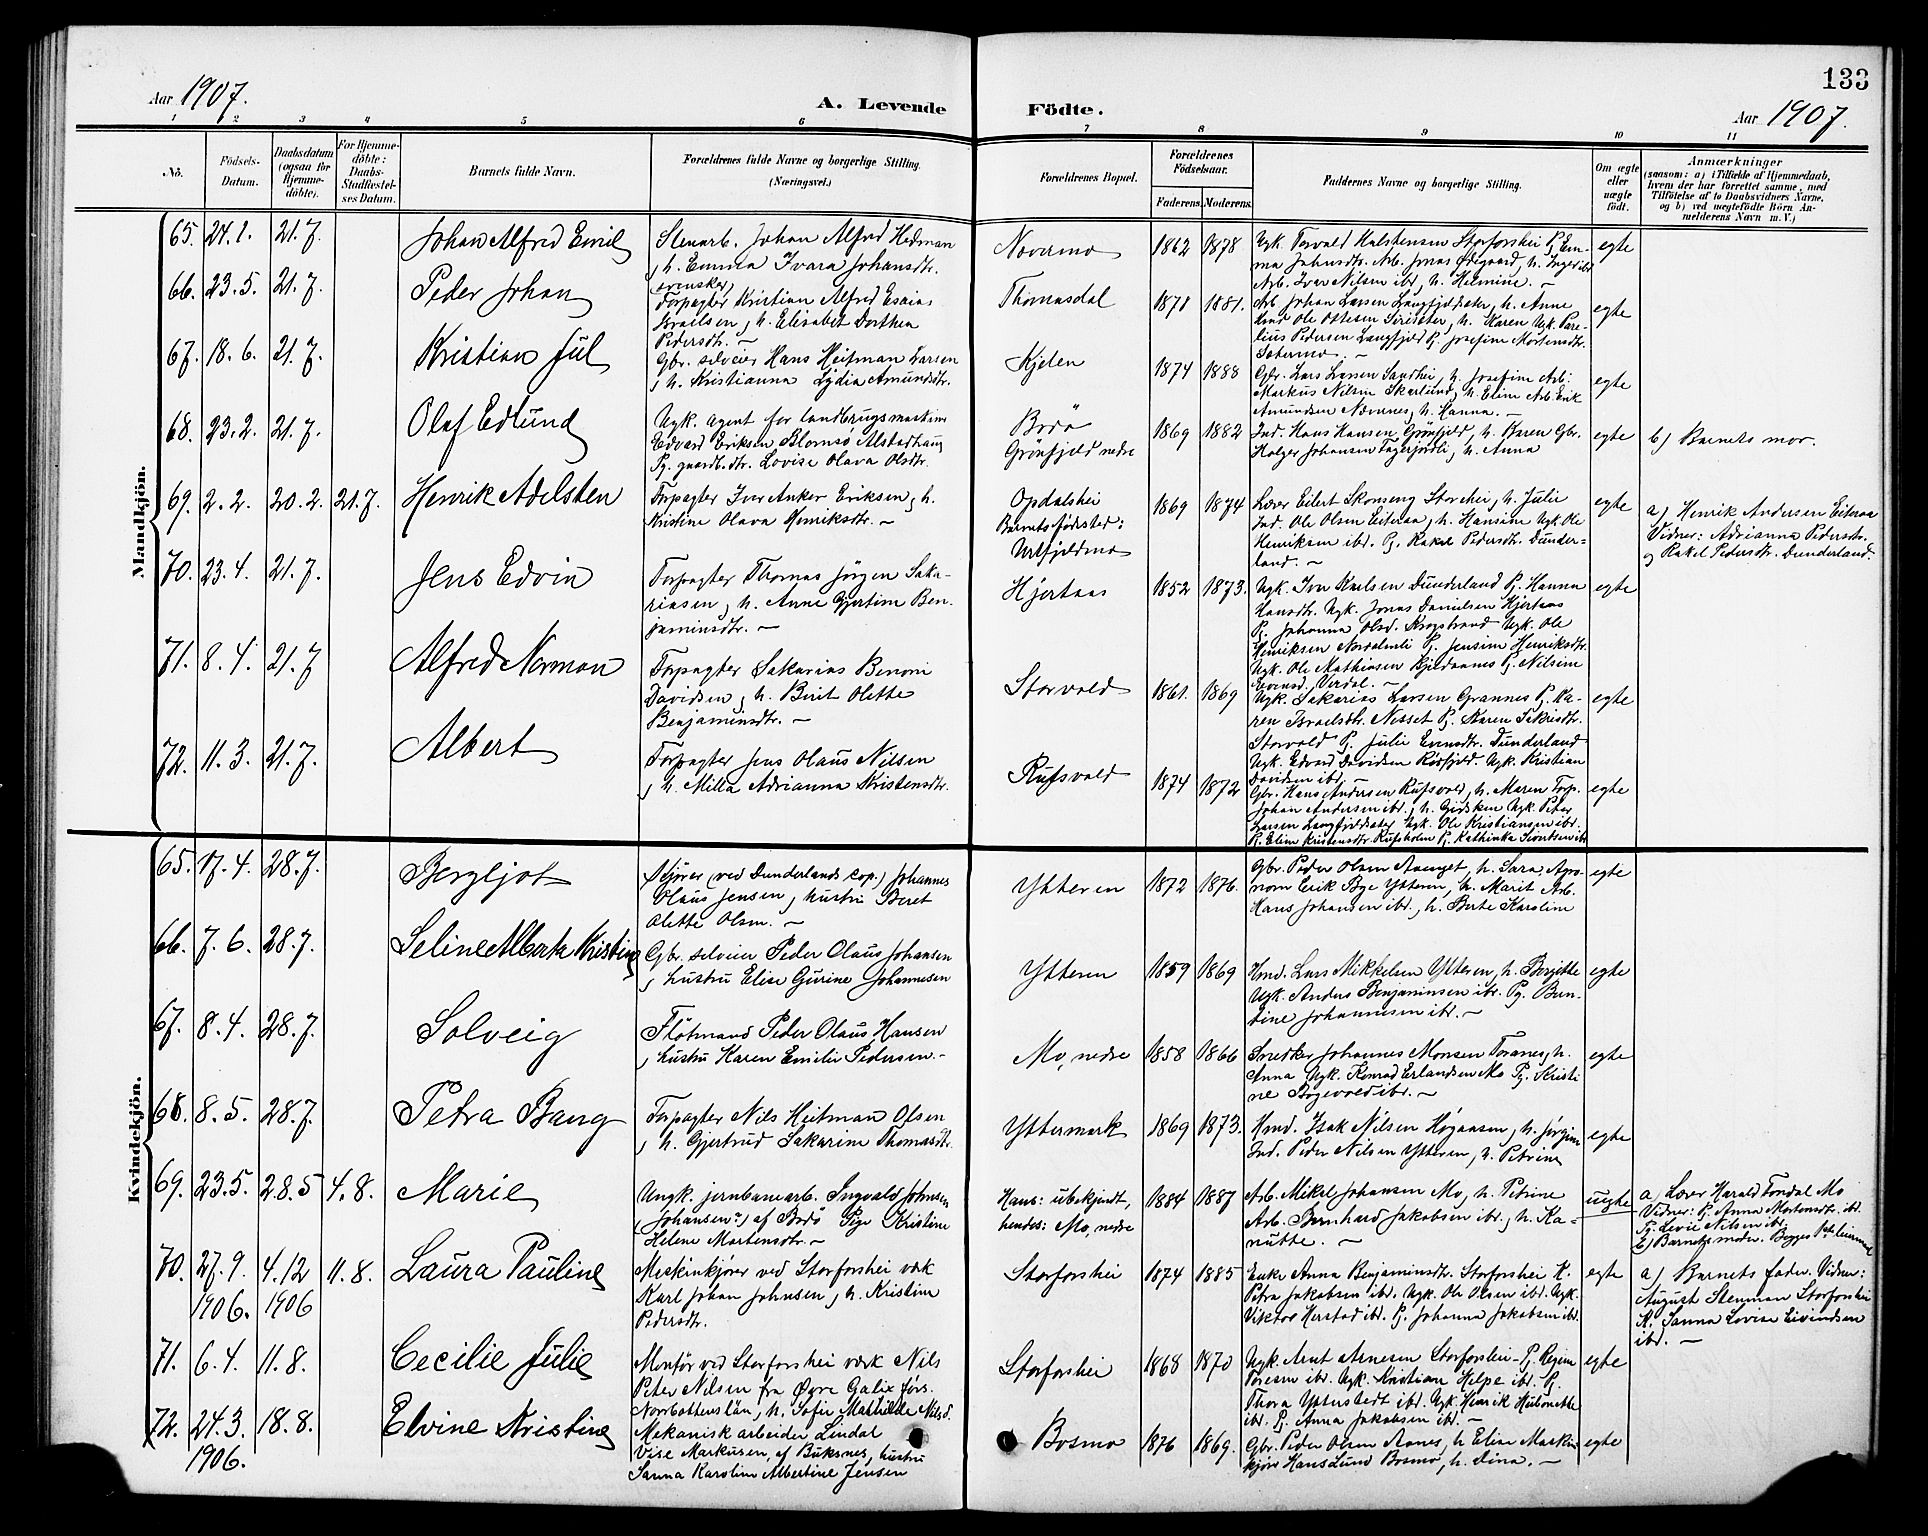 133
Aar 1907.
A. Levende Födte.
Aar 1907.
1 2 3 4 5 6 7 8 9 10 11
Nô.
Födsels-Datum.
Daabsdatum (ogsaa for Hjemmedöbte).
For Hjemmedöbte: Daabs-Stadfæstelses Datum.
Barnets fulde Navn.
Forældrenes fulde Navne og borgerlige Stilling. (Næringsvei.)
Forældrenes Bopæl.
Forældrenes Födselsaar.
Faderens. Moderens.
Faddernes Navne og borgerlige Stilling.
Om ægte eller uægte födt.
Anmærkninger
(saasom: a) i Tilfælde af Hjemmedaab, hvem der har forrettet samme, med Tilföielse af to Daabsvidners Navne, og b) ved uægtefödte Börn Anmelderens Navn m. V.)
Mandkjön.
65. 24.1. 21.7. Johan Alfred Emil
Stenarb. Johan Alfred Hedman
, h. Emma Ivara Johansdtr.
(svensker)
Novarmo 1862 1878
Ugk. Torvald Halstensen Storforshei Pj. Em-
ma Johnsdtr. Arb. Jonas Ødegaard, h. Inger ibr.
Arb. Iver Nilsen ibr, h. Helmine. —
egte
66. 23.5. 21.7. Peder Johan
Forpagter Kristian Alfred Esaias
Israilsen, h. Elisabet Dorthea
Pedersdtr. —
Thomasdal 1878 1881.
Arb. Johan Larsen Langfjeldsæter, h. Anne
Knud Ole Ottesen, h. Karen Ugk. Pare-
lius Pedersen Langfjeld Pj. Josefine Mortensdtr.
Sætermo. —
egte
67. 18.6. 21.7. Kristian Jul
Gbr. selveier Hans Heitman Larsen
, h. Kristianna Lydia Amundsdtr.
Kjelen 1874 1888
Gbr. Lars Larsen Sandhei, h. Josefine Arb.
Markus Nilsen Skarlund, h. Eline Arb. Erik
Amundsen Nævernes, h. Hanna. —
egte
68. 23.2. 21.7. Olaf Edlund
Ugk. agent for landbrugsmaskiner
Edvard Eriksen Blomsø Alstadhaug
Pg. gaardb. dtr. Lovise Olava Olsdtr.
Bodø
Grönfjeld nedre 1869 1882
Ind. Hans Hansen Grönfjeld, h. Karen Gbr.
Holger Johansen Fagerjordli, h. Anna
egte
b) Barnets mor.
69. 2.2. 20.2. 21.7. Henrik Adelsten
Forpagter Iver Anker Eriksen, h.
Kristine Olava Henriksdtr. —
Opdalshei
Barnets födested:
Urtfjeldmo
1869 1874
Lærer Eilert Skonseng Storshei, h. Julie
Ind. Ole Olsen Eiteraa, h. Hansine Ugk. Ole
Henriksen ibr. Pj. Rakel Pedersdtr. Dunder-
land. —
egte
a) Henrik Andersen Eiteraa
Vidner: Adrianna Pedersdtr.
og Rakel Pedersdtr. Dunderland.
70. 23.4. 21.7. Jens Edvin
Forpagter Thomas Jörgen Saka-
riassen, h. Anne Gjertine Ben-
jaminsdtr. —
Hjertaas 1852 1873.
Ugk. Iver Karlsen Dunderland Pj. Hanna
Hansdtr. Ugk. Jonas Danielsen Hjertaas
Pj. Johanna Olsd. Krogstrand Ugk. Ole
Henriksen Nordalenli Pj. Jensine Henriksdtr.
Ugk. Ole Mathiasen Kjeldaanes Pj. Nilsine
Evensd. Virdal. —
egte
71. 8.4. 21.7 Alfred Norman
Forpagter Sakarias Benoni
Davidsen, h. Birit Olette
Benjaminsdtr. —
Storvold 1861. 1869
Ugk. Sakarias Larsen Grannes Pj. Ka-
ren Israelsdtr. Nesset Pj. Karen Sakrisdtr.
Storvold Pj. Julie Evensdtr. Dunderland
Ugk. Edvard Davidsen Rösfjeld. Ugk. Kristian
Davidsen ibr. —
egte
72. 11.3. 21.7. Albert
Forpagter Jens Olaus Nilsen
, h. Milla Adrianna Kristensdtr.
Rufsvold 1874 1872
Gbr. Hans Andersen Rufsvold, h. Maren Forp.
Johan Andersen ibr., h. Gidsken Ugk. Peter
Larsen Langfjeldsæter Ugk. Ole Kristiansen ibr.
Pj. Eline Kristensdtr. Rufsholm Pj. Kathinka Sivertsen ibr
egte
Kvindekjön.
65. 17.4. 28.7. Bergljot
Kjører (ved Dunderlands cop.) Johannes
Olaus Jensen, hustru Beret
Olette Olsen. —
Ytteren 1872 1876.
Gbr. Peder Olsen Aaenget, h. Sara, Agro-
nom Erik Bye Ytteren, h. Marit Arb.
Hans Johansen ibr., h. Berte Karoline
egte
66. 7.6. 28.7. Seline Alberta Kristine
Gbr. selveier Peder Olaus Johansen
, hustru Elise Gurine Johannesen
Ytteren 1859 1869
Hmd. Lars Mikkelsen Ytteren, h. Borgitte
Ugk. Anders Benjaminsen ibr. Pg. Bern-
tine Johannesen ibr. —
egte
67. 8.4. 28.7. Solveig
Flötmand Peder Olaus Hansen
, hustru Karen Emilie Pedersen. —
Mo, nedre 1858 1866
Snedker Johannes Monsen Toranes, h.
Anna Ugk. Konrad Erlandsen Mo Pg. Kristi
ne Bogevold ibr. —
egte
68. 8.5. 28.7. Petra Bang
Forpagter Nils Heitman Olsen
, h. Gjertrud Sakarine Thomasdtr.
Yttermark 1869 1873.
Hmd. Isak Nilsen Høgaasen, h. Jørgine
Ind. Peder Nilsen Ytteren, h. Petrine
egte
69. 23.5. 28.5 4.8. Marie
Ungk. jernbanearb. Ingvald Johnsen
(Johansen?) af Bodø Pige Kristine
Helene Mortensdtr. —
Hans: ubekjendt,
hendes: Mo, nedre
1884 1887
Arb. Mikal Johansen Mo, h. Petrine
Arb. Bernhard Jakobsen ibr., h. Ka-
nutte. —
uegte
a) Lærer Harald Fondal Mo
Vidner: Pj. Anna Mortensdtr. ibr.
Pj. Levie Nilsen ibr.
b) Barnets moder. Begges 1ste leiermaal
70. 27.9. 1906. 4.12 1906 11.8. Laura Pauline
Meskinkjører ved Storforshei værk
Karl Johan Johnsen, h. Kristine
Pedersdtr.
Storforshei 1874 1885
Enke Anna Benjaminsdtr. Storforshei K.
Petra Jakobsen ibr. Ugk. Ole Olsen ibr. Ugk.
Viktor Herstad ibr. Pj. Johanna Jakobsen ibr.
egte
a) Barnets fader. Vidner:
August Stenman Storforshei
K. Sanna Lovise Eivindsen
ibr. —
71. 6.4. 11.8. Cecilie Julie
Montør ved Storforshei værk Nils
Peter Nilsen fra Øvre Galix förs.
Norrbottenslän, h. Sofie Mathilde Nilsd.
Storforshei 1868 1870
Ugk. Arnt Arnesen Storforshei Pj. Regine
Toresen ibr. Ugk. Kristian Helpe ibr. Pj.
Thora Ytterstedt ibr. Ugk. Henrik Hultonette
ibr. Pj. Anna Jakobsen ibr. —
egte
72. 24.3. 1906. 18.8. Elvine Kristine
Mekanisk arbeider Lendal
Vise Markusen, af Buksnes, hustru
Sanna Karoline Albertine Jensen
Bosmo 1876 1869.
Gbr. Peder Olsen Aanes, h. Elise Maskin-
kjører Hans Lund Bosmo, h. Dina. —
egte